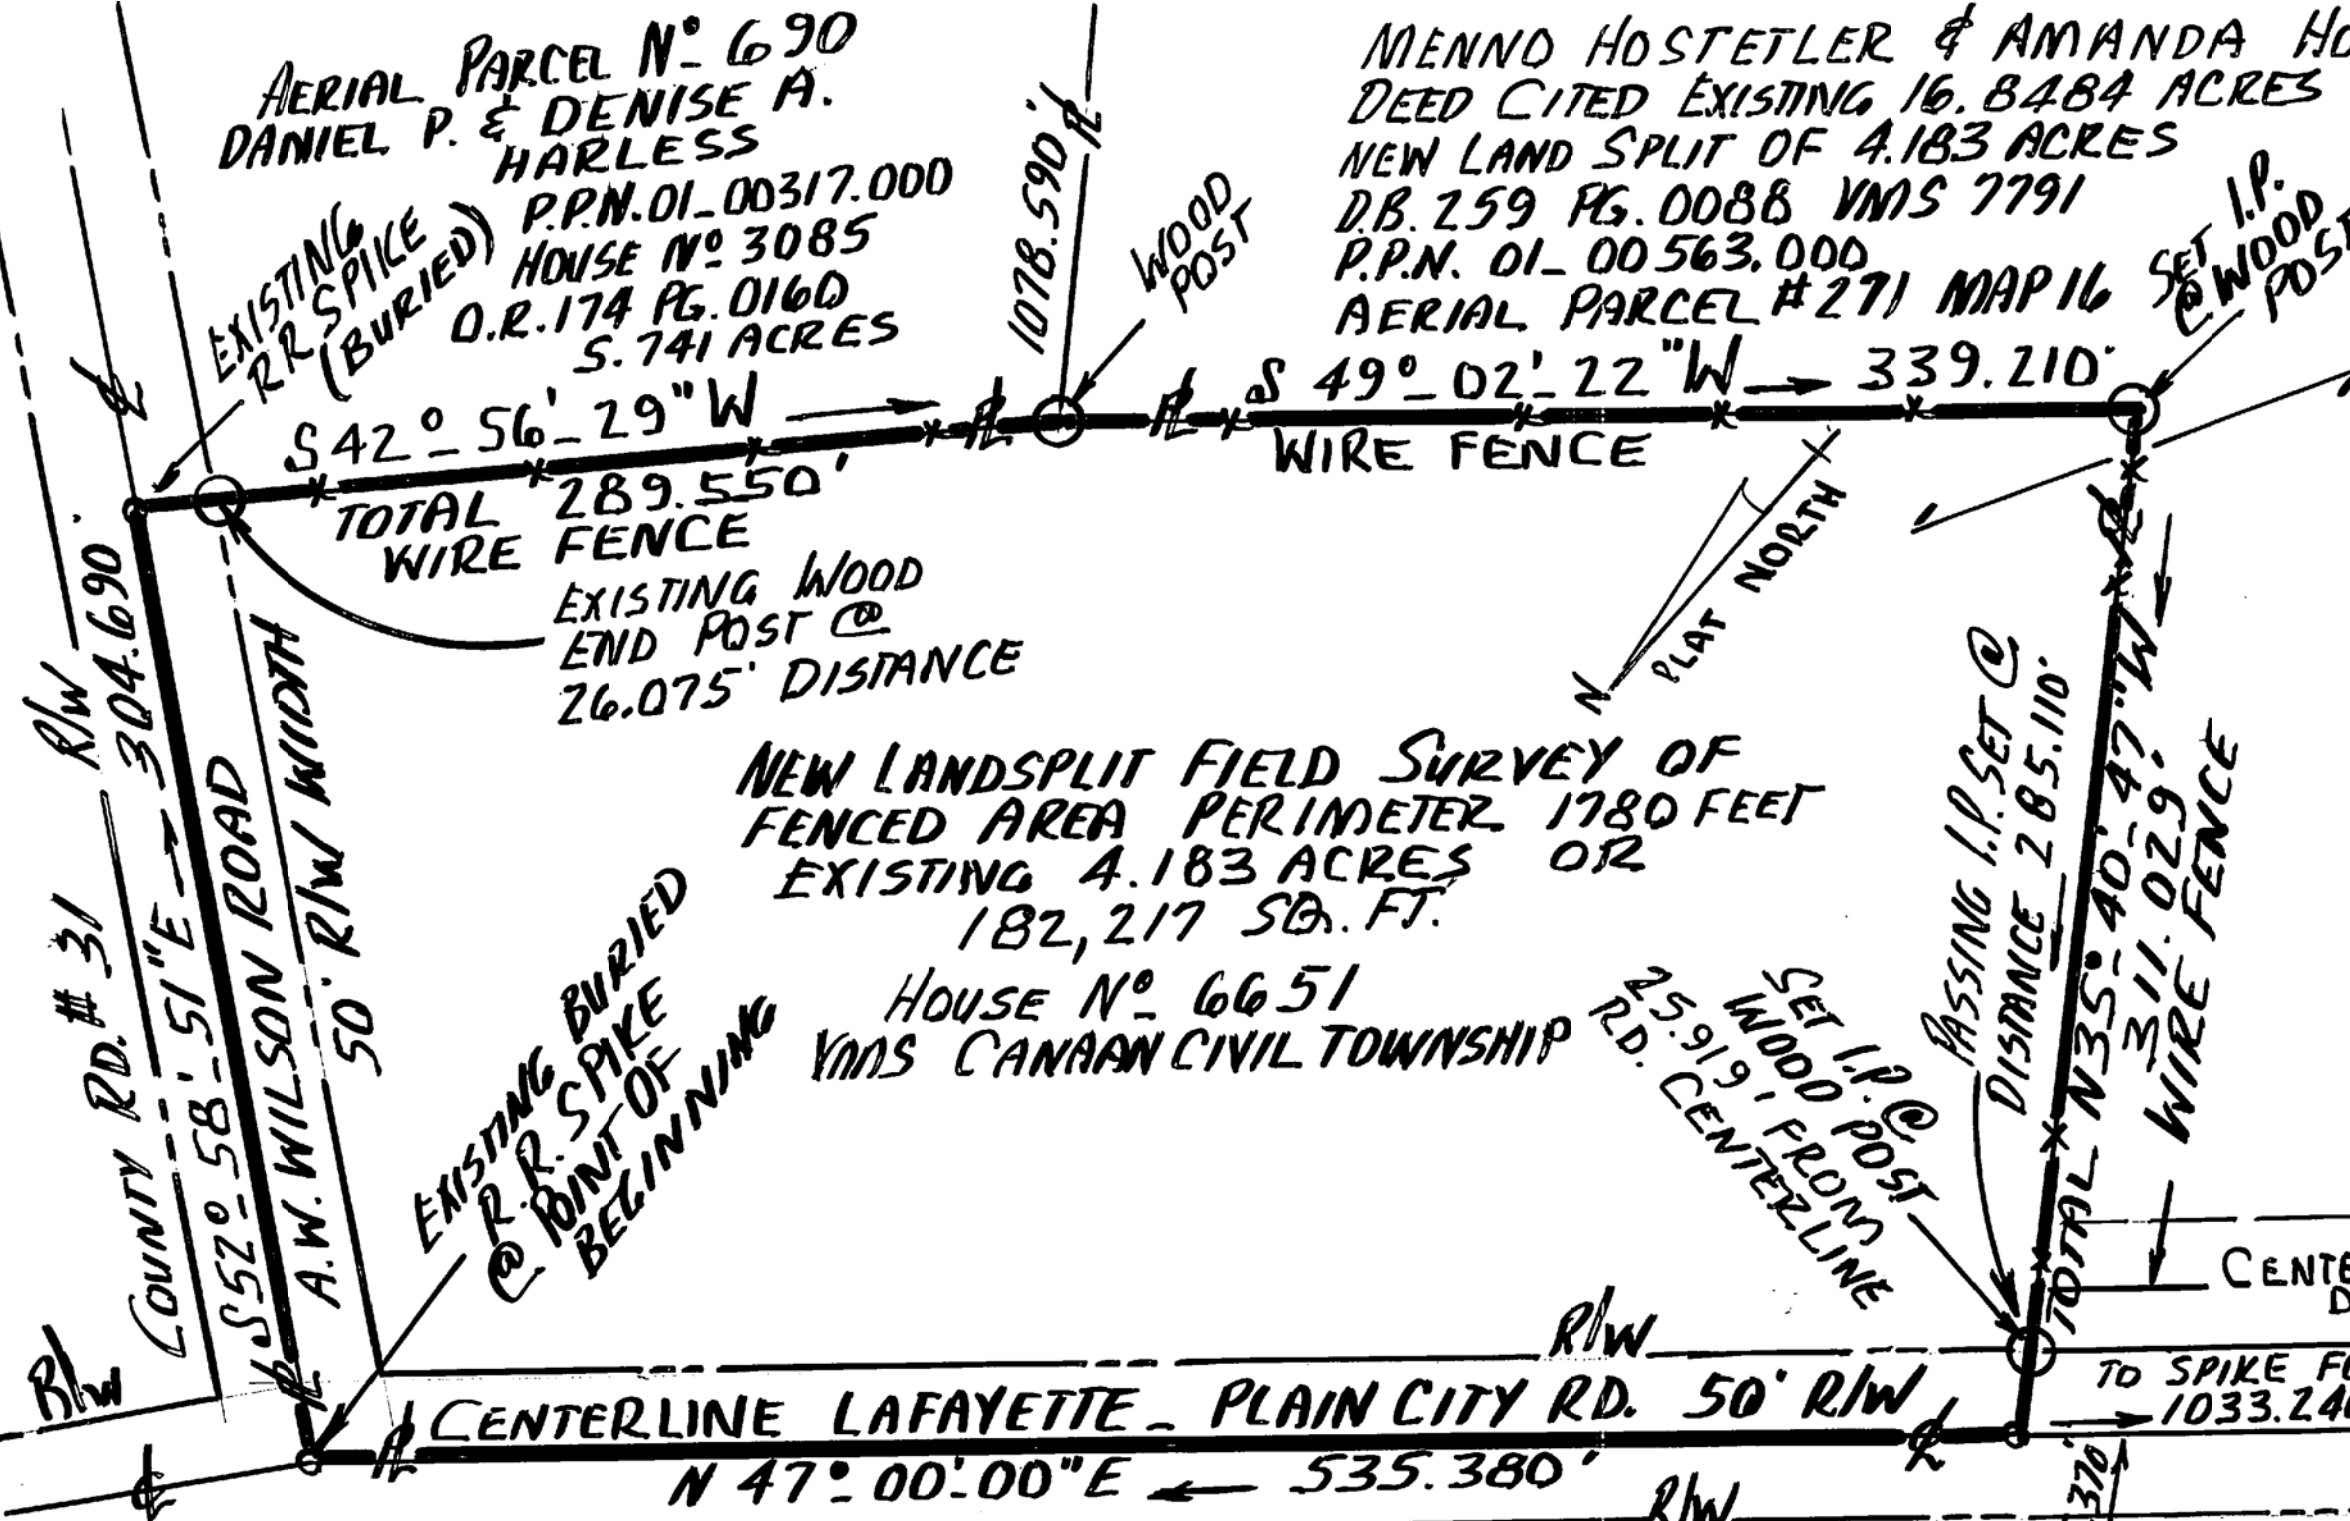 AERIAL PARCEL Nº 690
DANIEL P. & DENISE A.
HARLESS
P.P.N. 01-00317.000
HOUSE Nº 3085
O.R. 174 PG. 0160
5.741 ACRES
EXISTING
RR SPIKE
(BURIED)
1078.590'
WOOD
POST
MENNO HOSTETLER & AMANDA HO
DEED CITED EXISTING 16.8484 ACRES
NEW LAND SPLIT OF 4.183 ACRES
D.B. 259 PG. 0088 VMS 7791
P.P.N. 01-00563.000
AERIAL PARCEL #271 MAP 16
SET I.P.
@ WOOD
POST
S 42º-56'-29" W
TOTAL 289.550'
WIRE FENCE
S 49º-02'-22" W 339.210'
WIRE FENCE
EXISTING WOOD
END POST @
26.075' DISTANCE
N
PLAT NORTH
NEW LANDSPLIT FIELD SURVEY OF
FENCED AREA PERIMETER 1780 FEET
EXISTING 4.183 ACRES OR
182,217 SQ. FT.
HOUSE Nº 6651
VMS CANAAN CIVIL TOWNSHIP
R/W
COUNTY RD. #31
S 52º-58'-51" E 304.690'
A.W. WILSON ROAD
50' R/W WIDTH
EXISTING BURIED
R.R. SPIKE
@ POINT OF
BEGINNING
SET I.P. @
WOOD POST
25.919' FROM
RD. CENTERLINE
PASSING I.P. SET @
DISTANCE 285.110'
TOTAL N 35º-40'-47" W
311.029'
WIRE FENCE
CENTE
D
R/W
R/W
CENTERLINE LAFAYETTE - PLAIN CITY RD. 50' R/W
N 47º-00'-00" E 535.380'
TO SPIKE
1033.24
370'
R/W